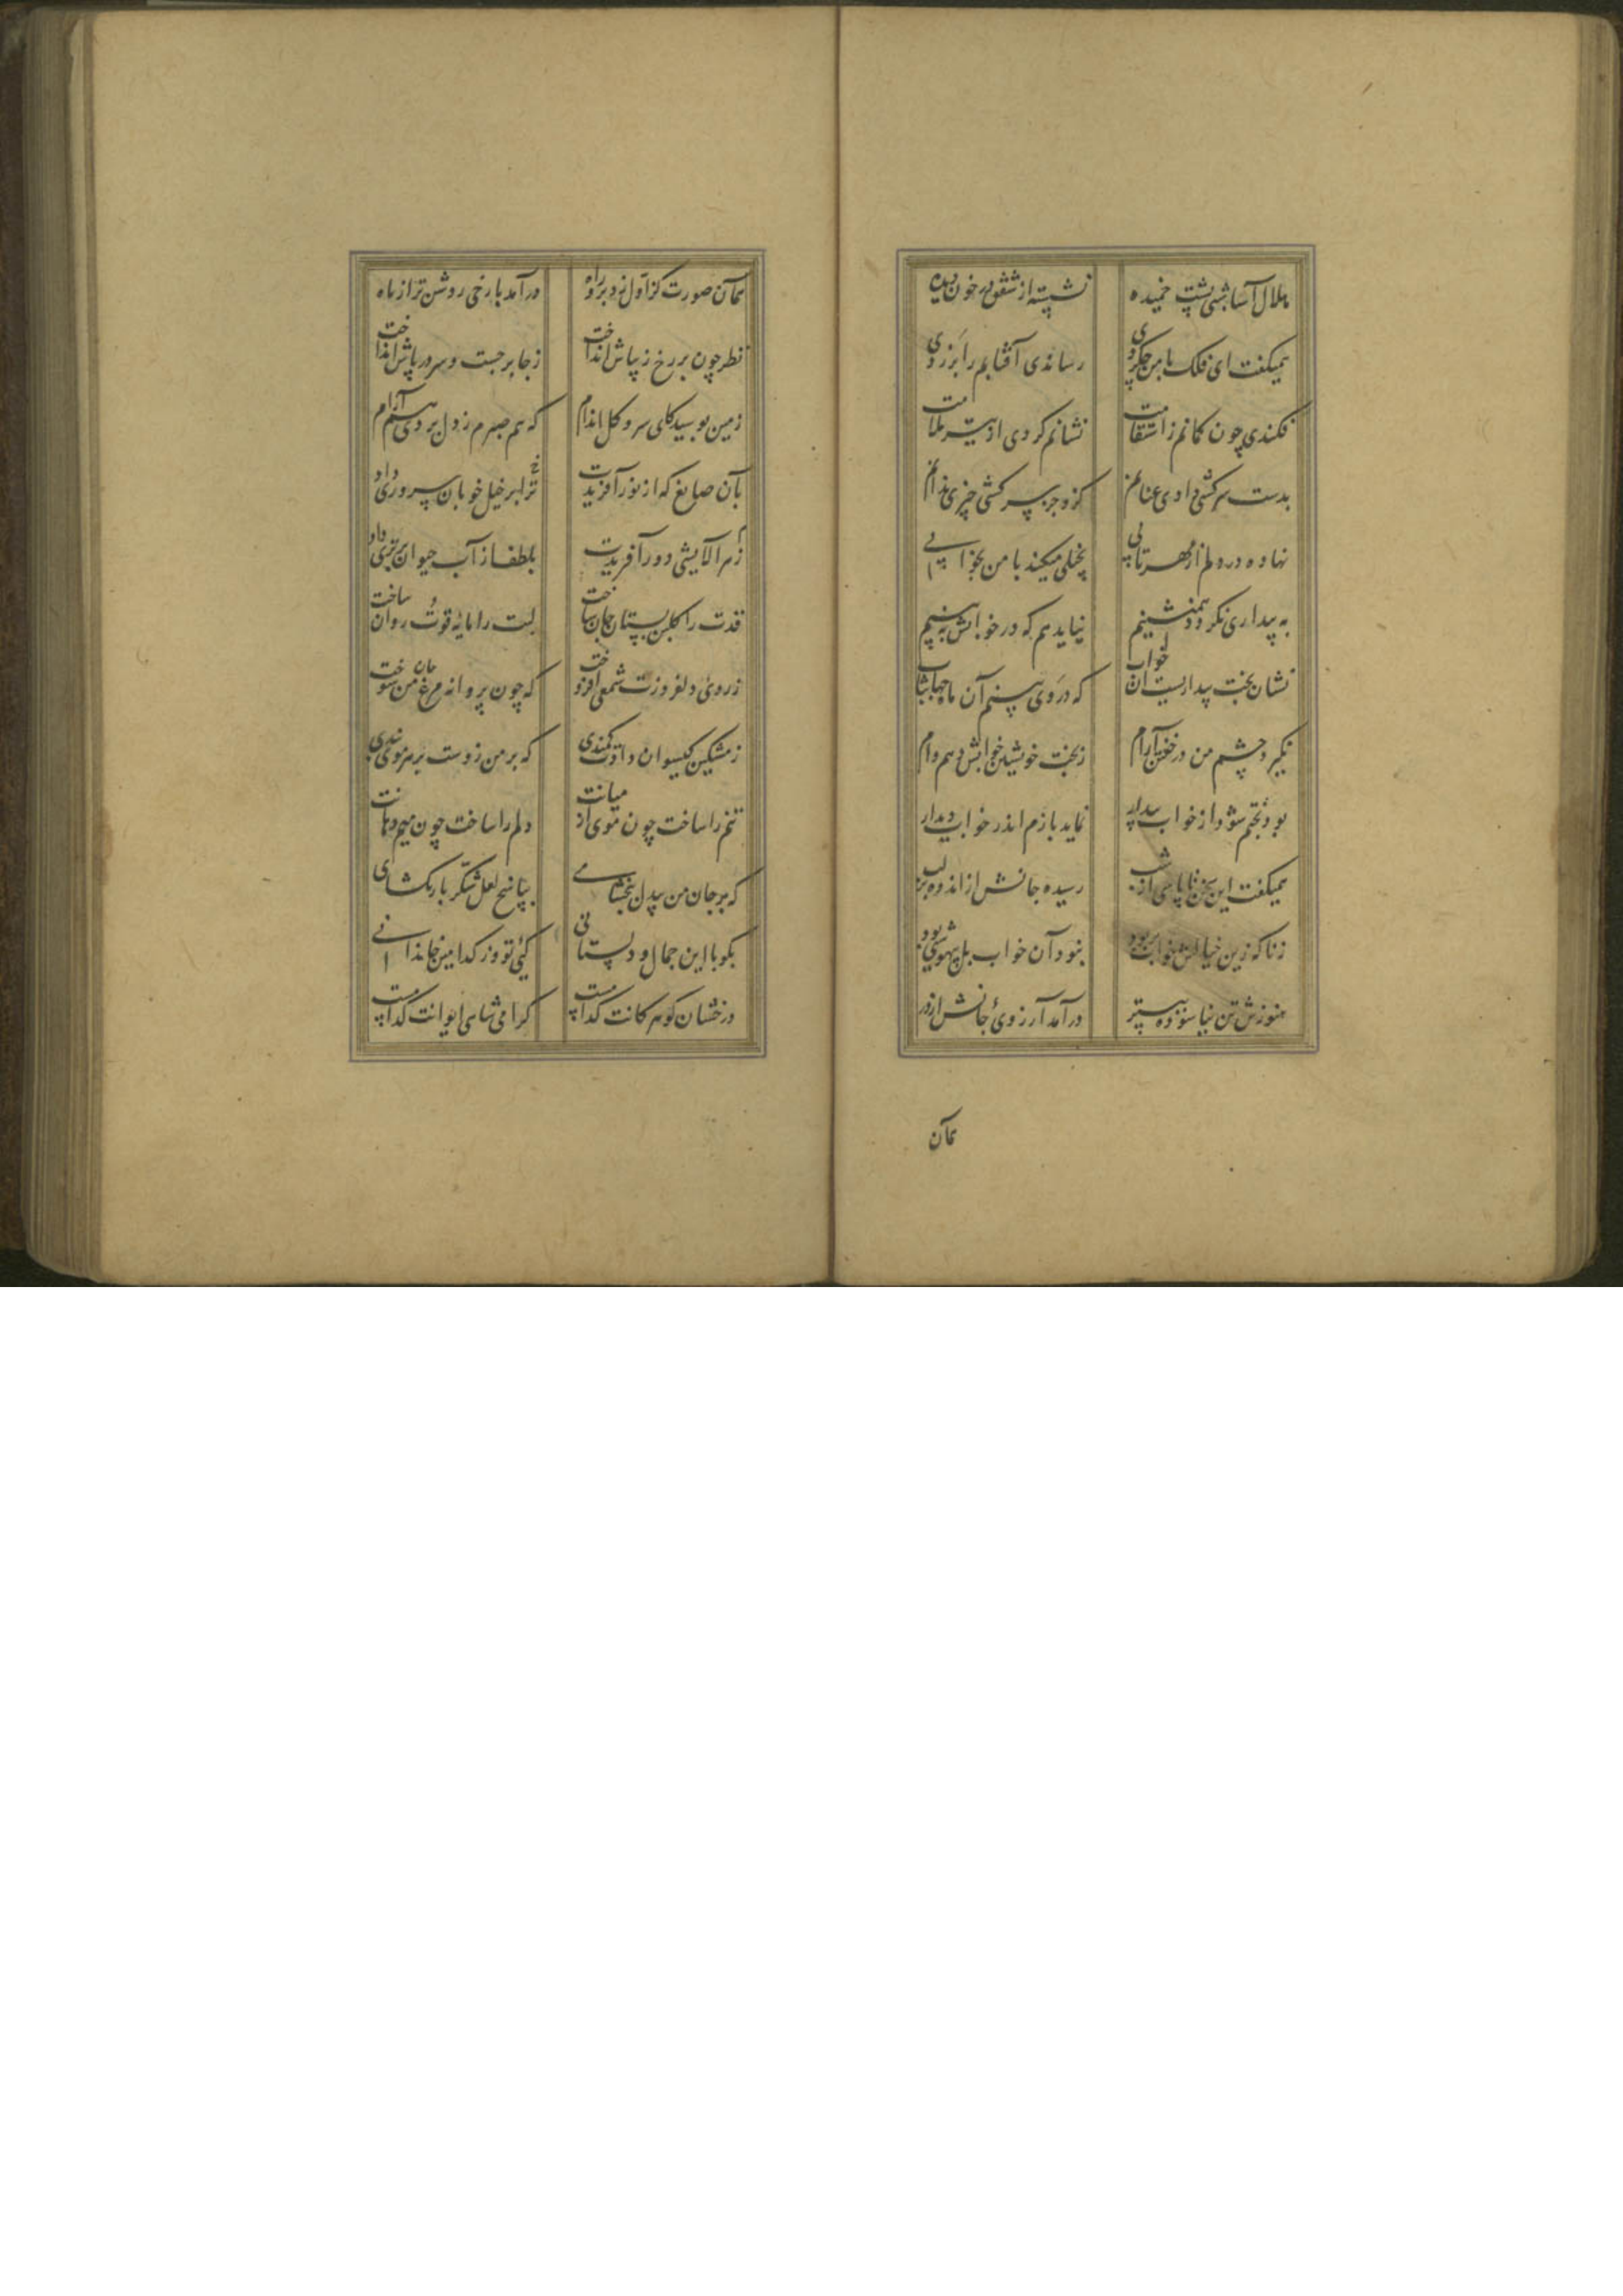 هلال آسا شبی پشت خمیده نشسته از شفق در خون دیده
همیگفت ای فلک با من چکردی رساندی آفتابم را بزردی
فکندی چون کمانم ز استقامت نشانم کردی از تیر ملامت
بدست سرکشی دادی عنانم کزو جز سرکشی چیزی ندانم
نهاده در دلم از مهر تابی بخیلی میکند با من بخوابی
به بیداری نگردد همنشینم نیاید هم که در خوابش ببینم
نشان بخت بیداریست آن خواب که در وی بینم آن ماه جهانتاب
نگیرد چشم من در خفتن آرام ز بخت خویشتن خوابش دهم وام
بود بختم شود از خواب بیدار نماید بازم اندر خواب دیدار
همیگفت این سخن تا پاسی از شب رسیده جانش از اندوه بر لب
ز ناگه زین خیالش خواب بربود نبود آن خواب بل بیهوشیی بود
هنوزش تن نیاسوده ببستر درآمد آرزوی جانش از در
همان
همان صورت کز اول زد برو راه درآمد با رخی روشن تر از ماه
نظر چون بر رخ زیباش انداخت ز جا برجست و سر در پاش انداخت
زمین بوسید کای سرو گل اندام که هم صبرم ز دل بردی هم آرام
بآن صانع که از نور آفریدت ز هر آلایشی دور آفریدت
ترا بر خیل خوبان سروری داد بلطف از آب حیوان برتری داد
قدت را گلبن بستان جان ساخت لبت را مایه قوت روان ساخت
ز روی دلفروزت شمعی افروخت که چون پروانه مرغ جان من سوخت
ز مشکین گیسوان دادت کمندی که بر من زوست بر هر موی بندی
تنم را ساخت چون موی از میانت دلم را ساخت چون میم دهانت
که بر جان من بیدل ببخشای بپاسخ لعل شکر بار بگشای
بگو با این جمال و دلستانی کئی تو وز کدامین خاندانی
درخشان گوهر کانت کدامست گرامی شاهی ایوانت کدامست